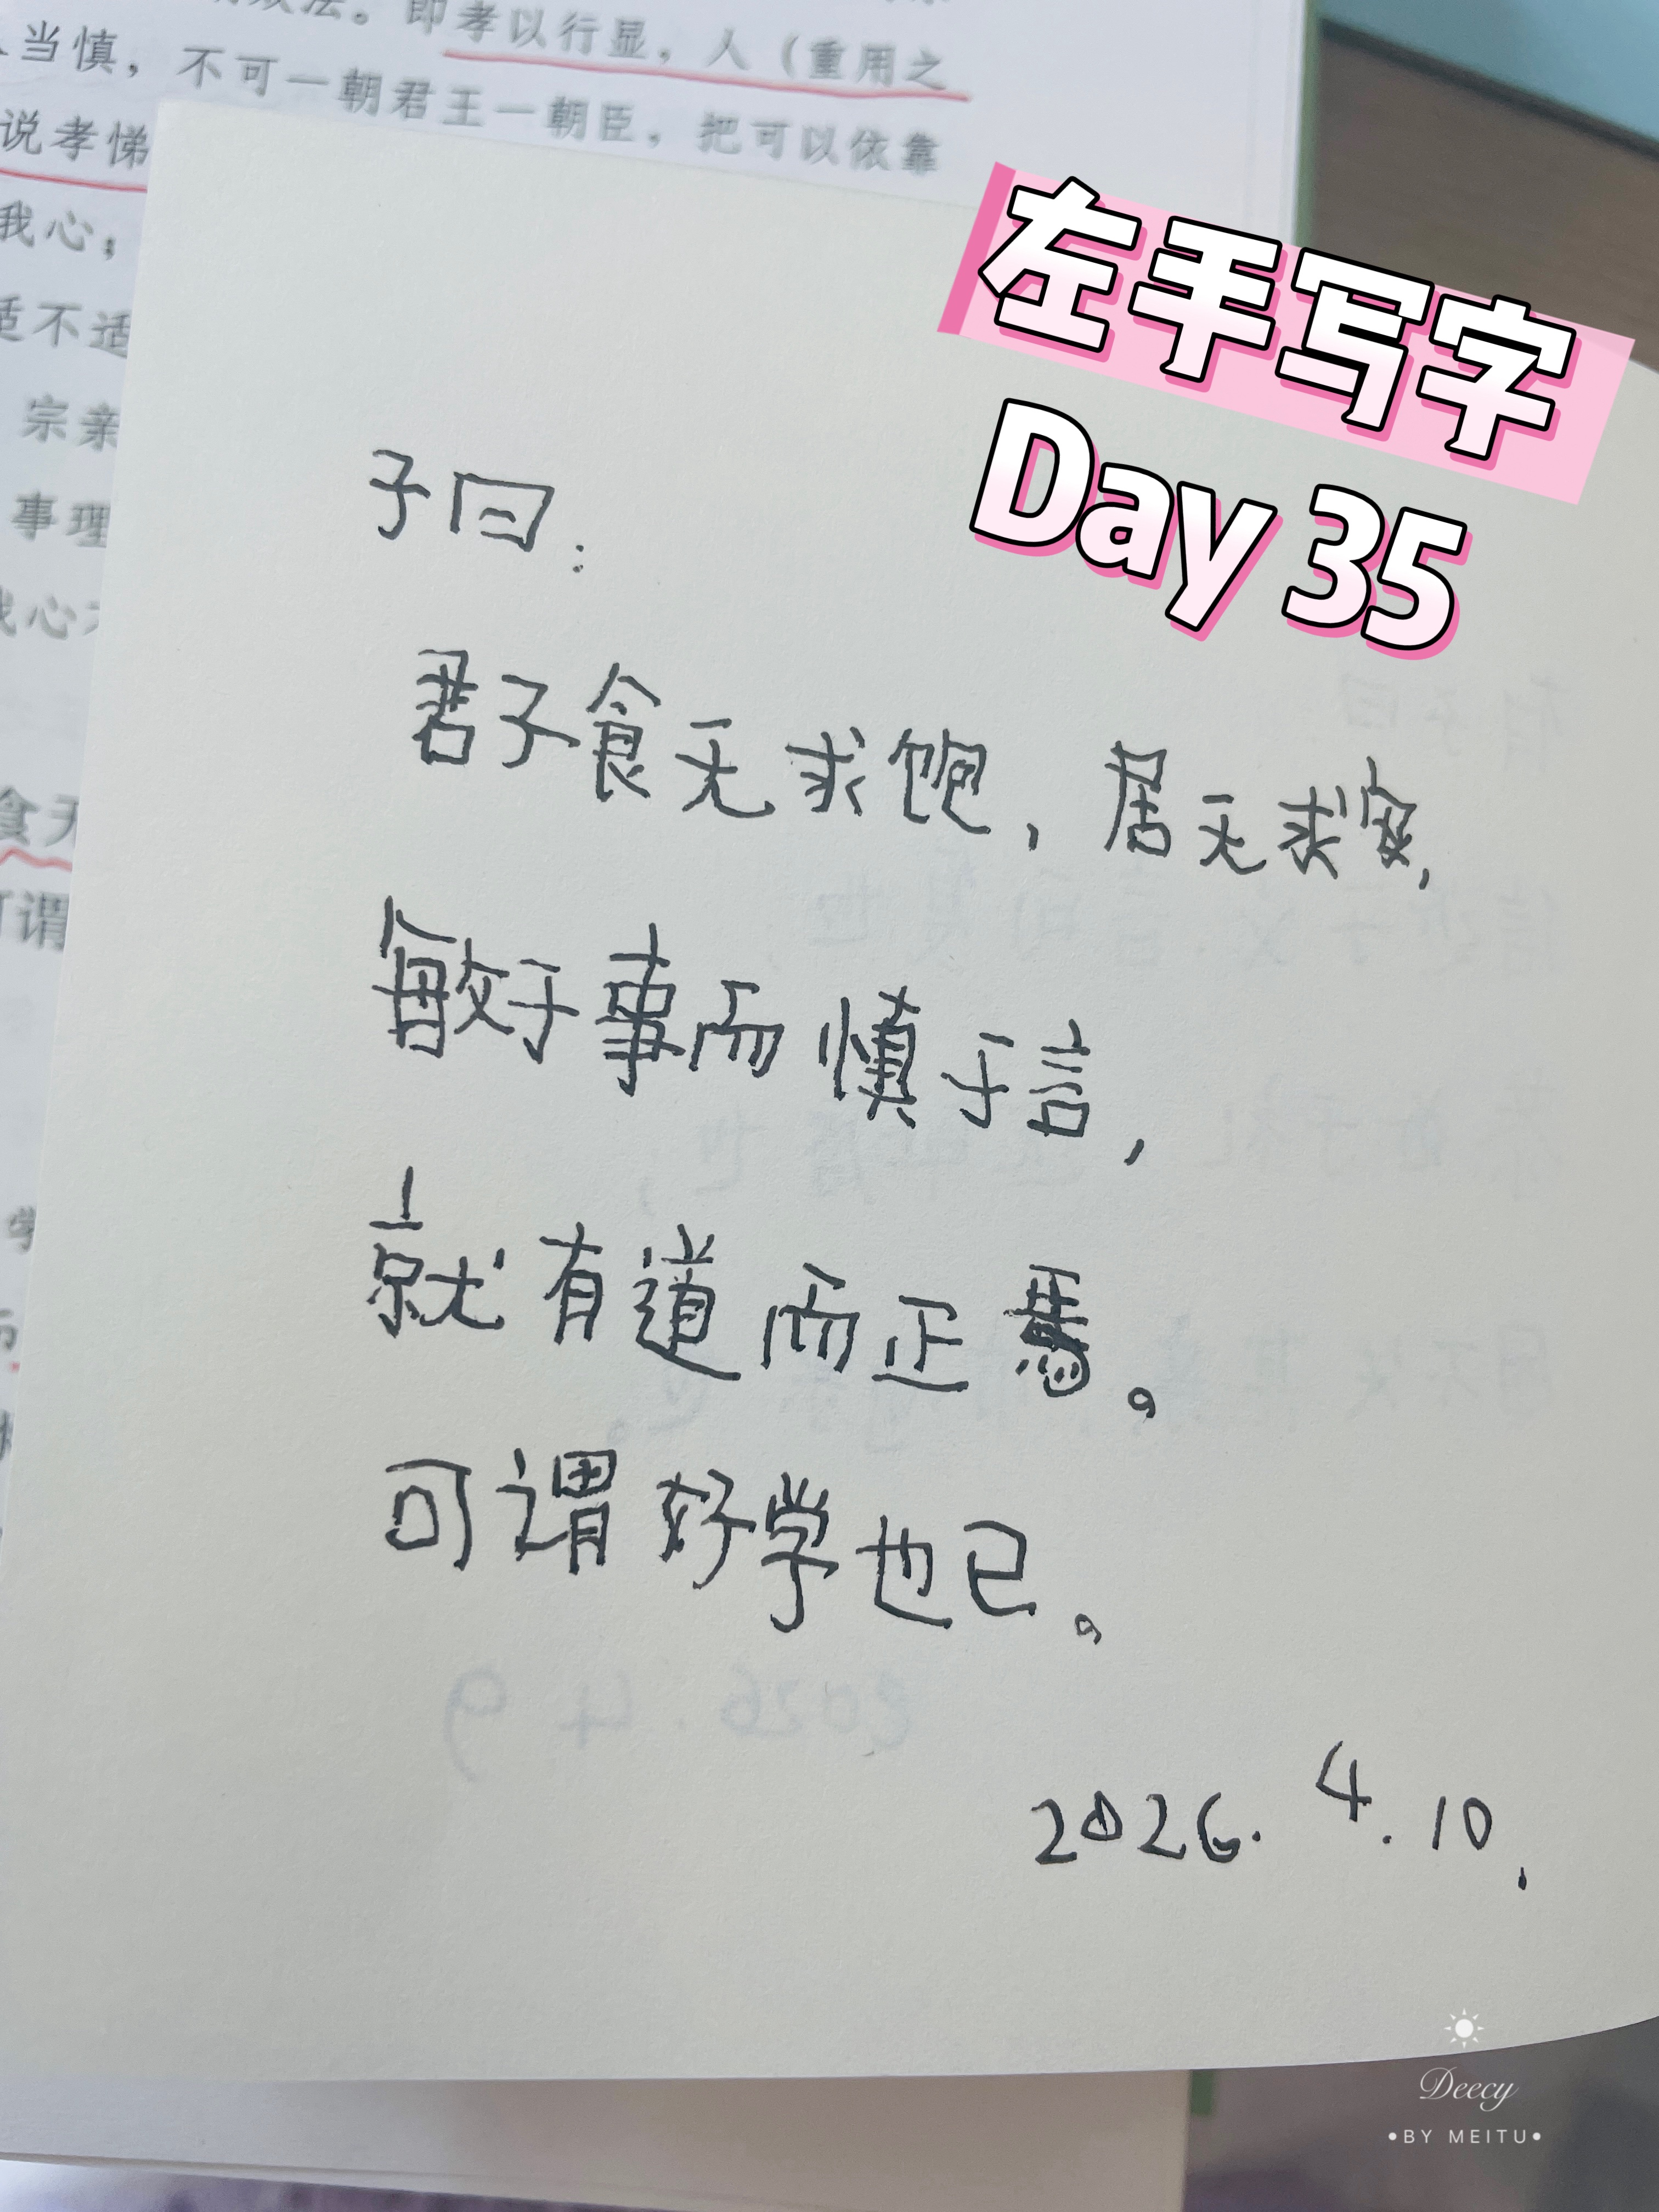 即孝以行显，人（重用之
当慎，不可一朝君王一朝臣，把可以依靠
说孝悌
我心；
适不适
宗亲
事理
我心
食无
可谓
左手写字
Day 35
子曰：
君子食无求饱，居无求安，
敏于事而慎于言，
就有道而正焉。
可谓好学也已。
2026.4.9
2026.4.10.
Deecy
•BY MEITU•